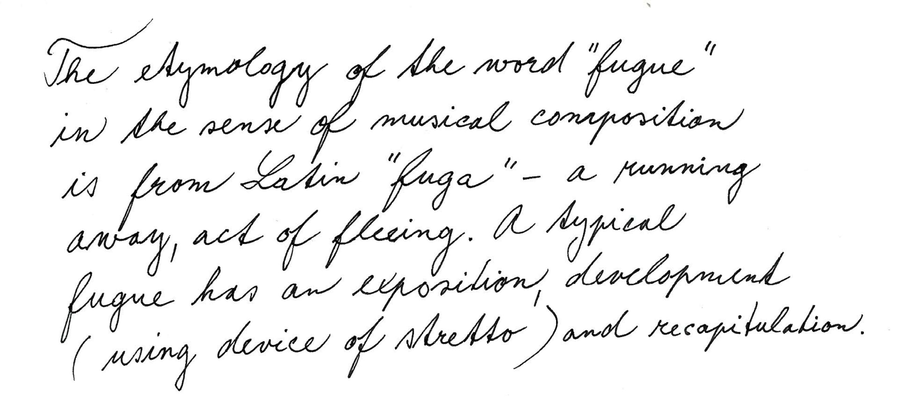 The etymology of the word "fugue"
in the sense of musical composition
is from Latin "fuga" – a running
away, act of fleeing. A typical
fugue has an exposition, development
(using device of stretto) and recapitulation.